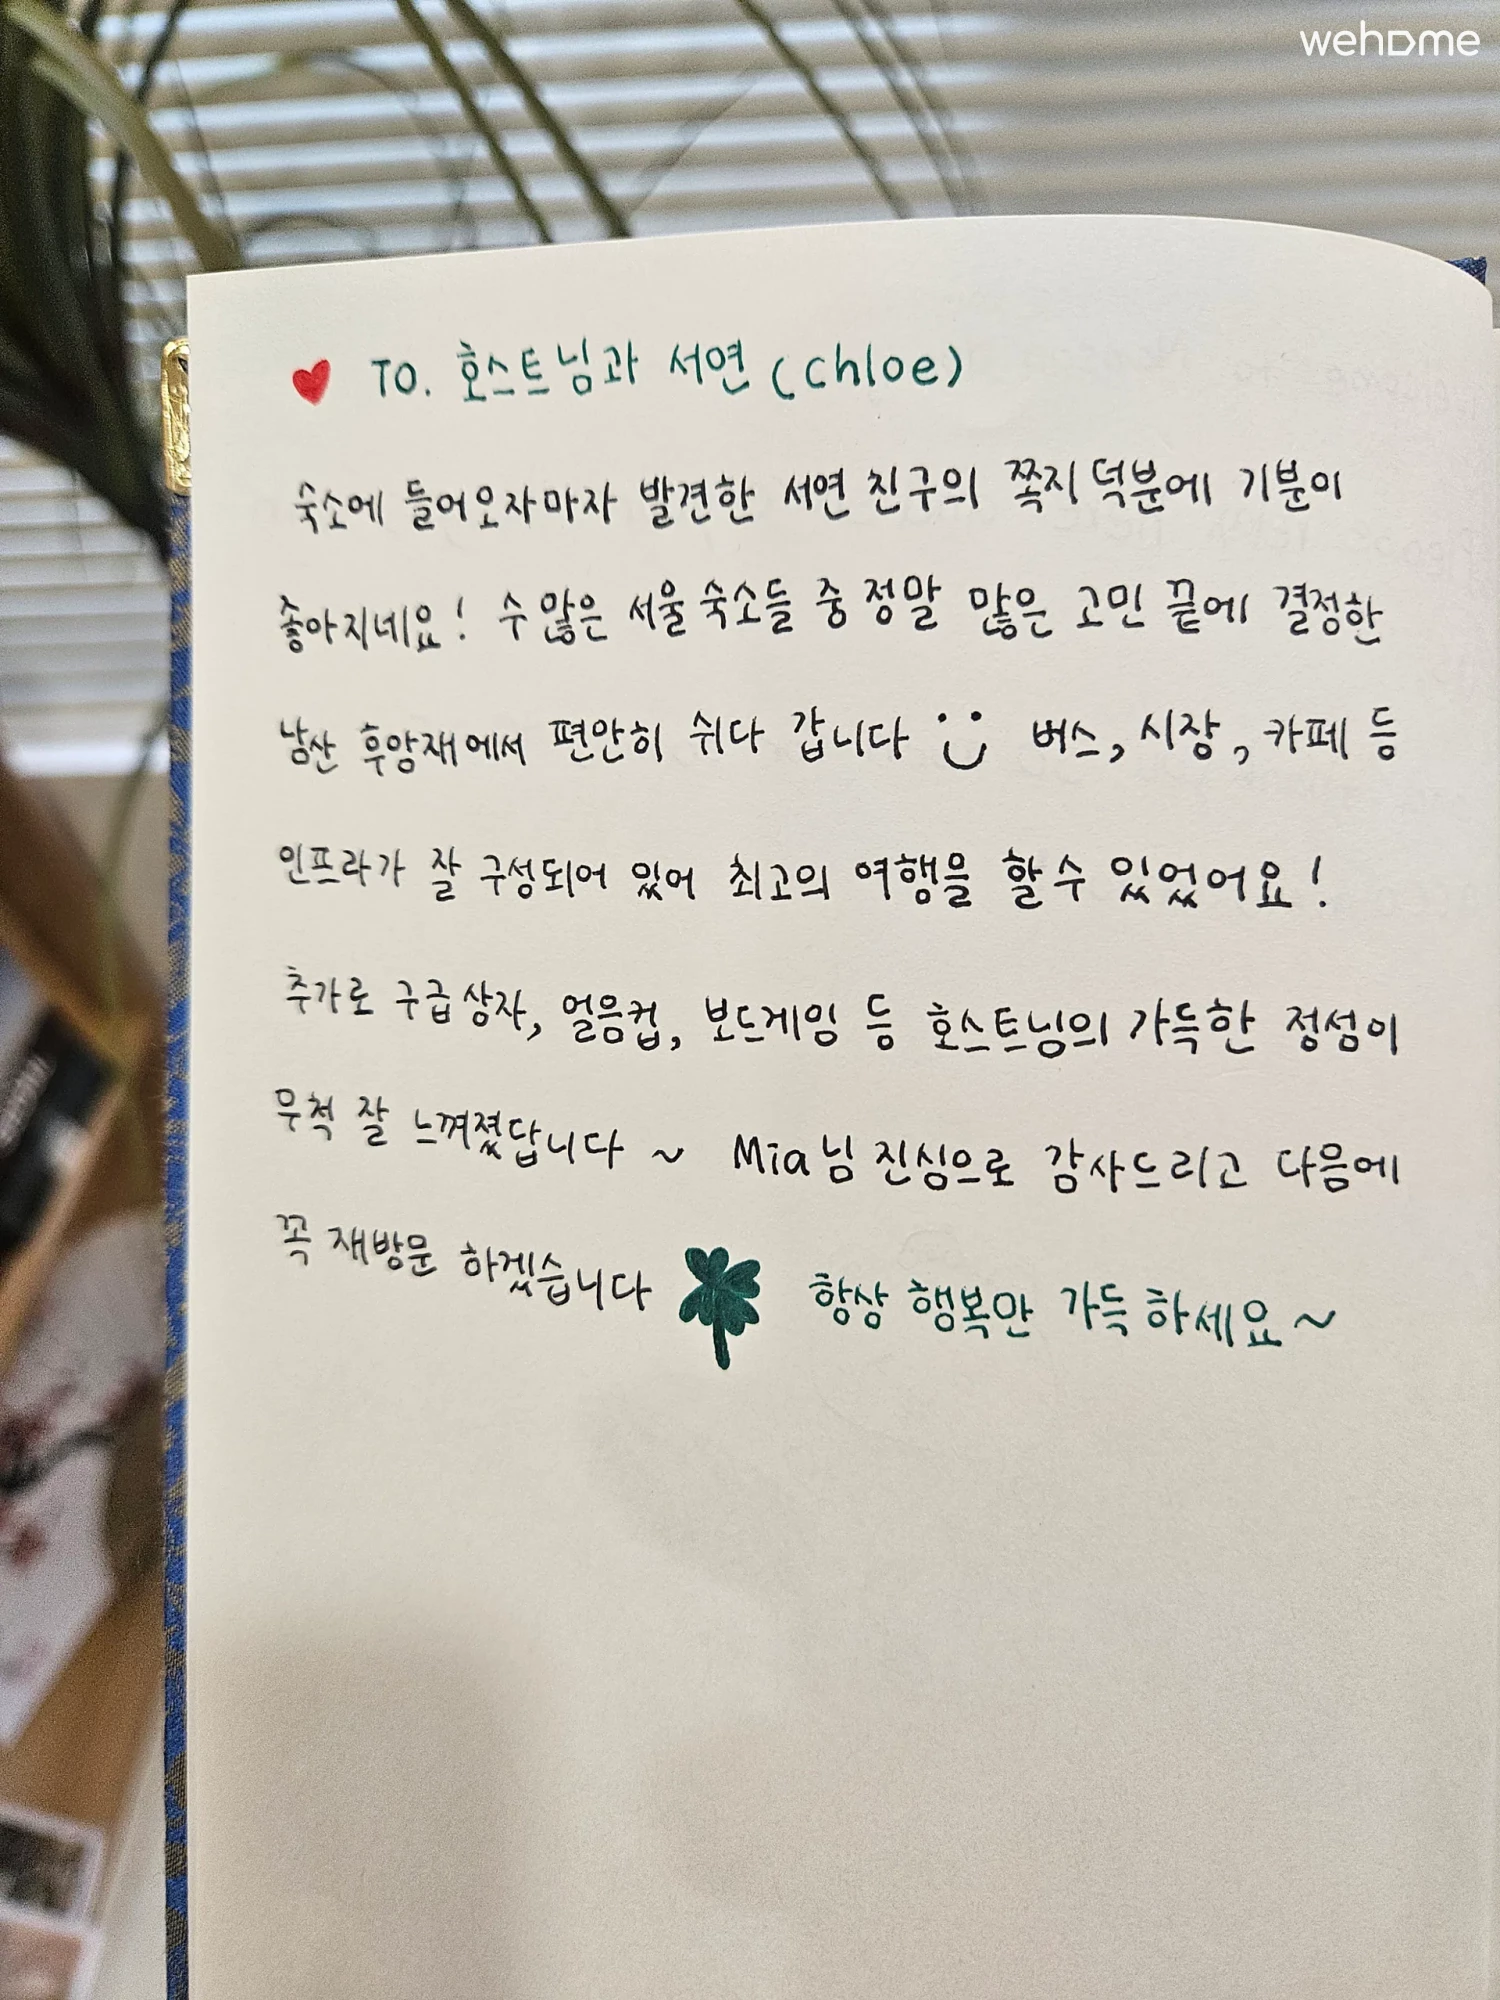 wehome
TO. 호스트님과 서연 (chloe)
숙소에 들어오자마자 발견한 서연 친구의 쪽지 덕분에 기분이
좋아지네요! 수많은 서울 숙소들 중 정말 많은 고민 끝에 결정한
남산 후암재에서 편안히 쉬다 갑니다 버스, 시장, 카페 등
인프라가 잘 구성되어 있어 최고의 여행을 할 수 있었어요!
추가로 구급상자, 얼음컵, 보드게임 등 호스트님의 가득한 정성이
무척 잘 느껴졌답니다 ~ Mia님 진심으로 감사드리고 다음에
꼭 재방문 하겠습니다 항상 행복만 가득하세요~